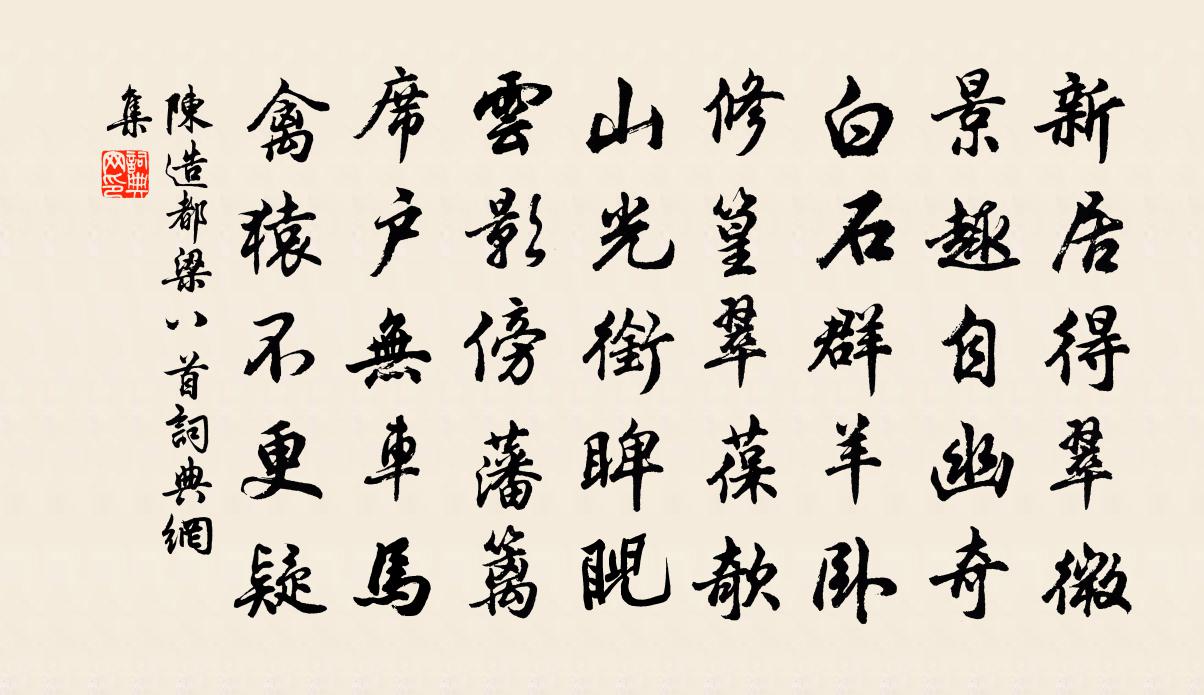 新居得翠微
景趣自幽奇
白石群羊卧
修篁翠葆欹
山光銜睥睨
雲影傍藩籬
席户無車馬
禽猿不更疑
陳造都梁八首詞典網
集
詞典網印